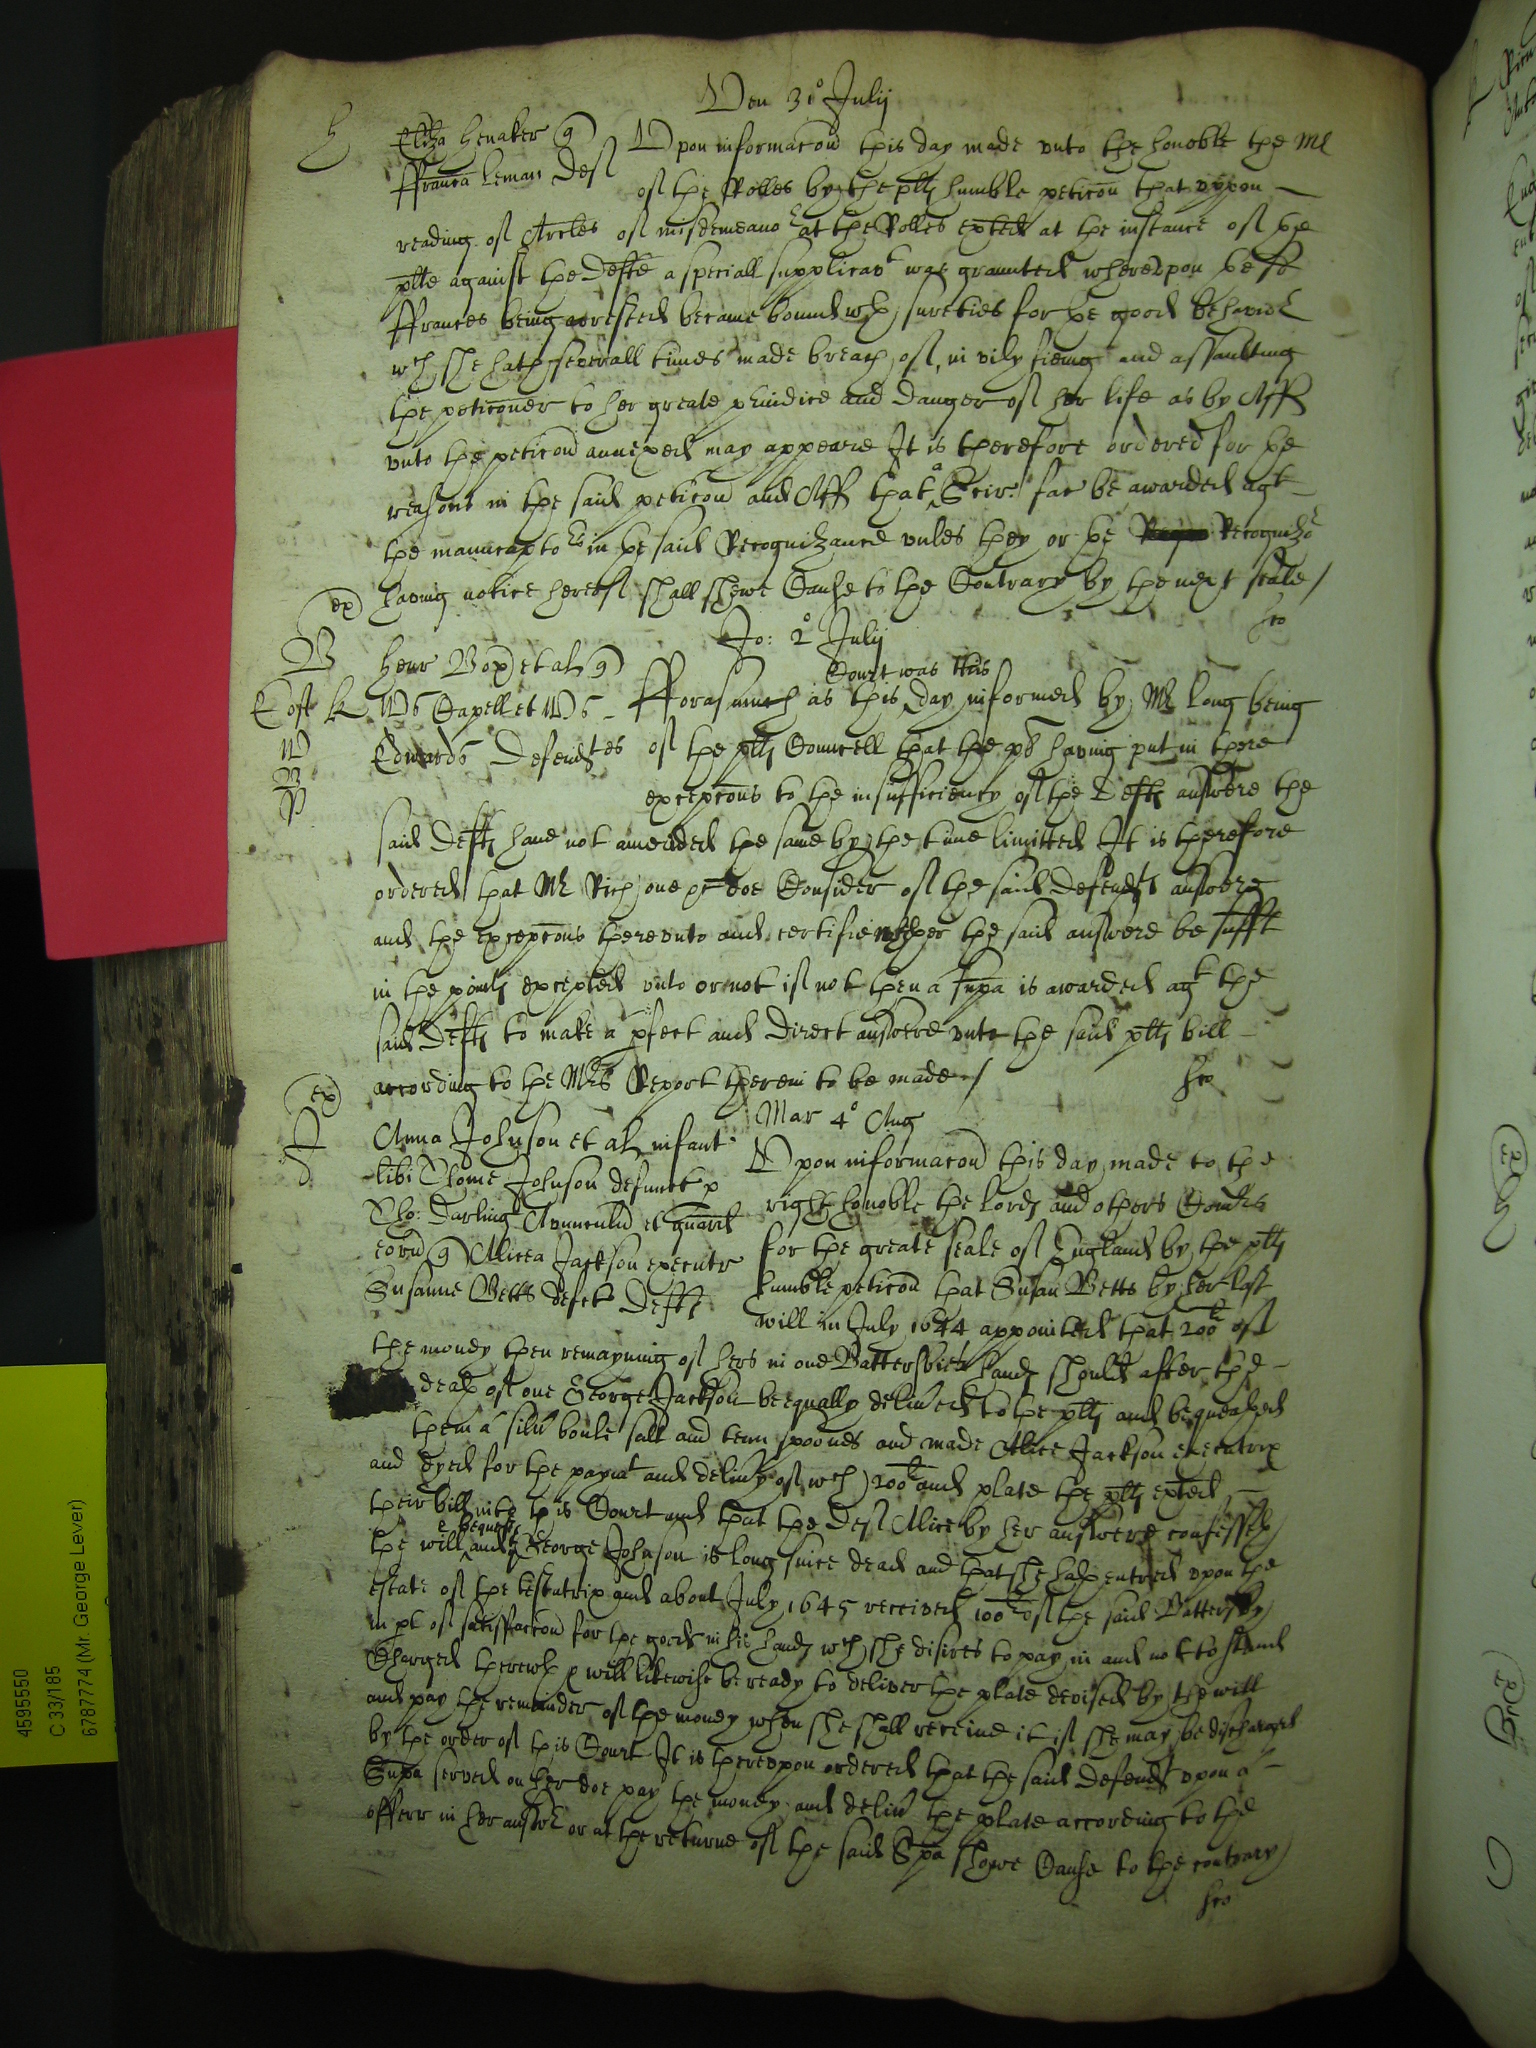 Ven 31° Julij
h
Eliza Henaker q
ffrancā Leman Def
Upon informacon this day made unto the honoble the Mr
of the Rolles by the plts humble peticon that uppon
reading of Arcles of misdemeanor at the Rolles exhted at the instance of the
plte against the Defte a speciall supplicavt was graunted whereupon the sd
ffrances being arrested became bound wth sureties for the good behavior
wch she hath severall times made breach of, in vily and assaulting
the peticoner to her greate pjudice and danger of her life as by Aff
unto the peticon annexed may appeare It is therefore ordered for the
reasons in the said peticon and Aff that a Scir: fac be awarded agt
the manucaptors in the said Recognizance unles they or the Recognizor
having notice hereof shall shewe Cause to the Contrary by the next seale /
ex
hco
Jo: 2° Julij
B
Henr Box et al q
Court was this
Ws Capell et Ws
Edwards Defendtes
fforasmuch as this day informed by Mr Long being
of the plts Councell that the pls having put in there
W
B
P
excepcons to the insufficiency of the Defts answere the
said Defts have not amended the same by the time limitted It is therefore
ordered that Mr Rich one &c doe Consider of the said Defendts answere
and the excepcons thereunto and certifie whther the said answere be sufft
in the points excepted unto or not if not then a supa is awarded agt the
said Defts to make a pfect and direct answere unto the said plts bill
according to the Mrs Report therein to be made /
ex
hco
Mar 4° Aug
J
Anna Johnson et al infant
libi Thome Johnson defunct p
Tho: Darling Avunculu et guard
eoru q Alicea Jackson executr
Susanne Betts defct Deft
Upon informacon this day made to the
right honoble the Lords and others Comrs
for the greate seale of England by the plts
humble peticon that Susan Betts by her last
will in July 1644 appointed that 200l of
the money then remayning of hers in one Battersbies hands should after the
death of one George Jackson be equally delived to the plts and bequeathed
them a silv boule salt and tenn spoones and made Alice Jackson executrix
and dyed for the paymt and delivy of wch 200l and plate the plts exhted
their bill into this Court and that the Def Alice by her answere confesseth
e bequests
the will and George Johnson is long since dead and that she hath entred upon the
estate of the testatrix and about July 1645 received 100l of the said Battersby
in pt of satisffaccon for the goods in his hands wch she disires to pay in and not to stand
Charged therewth & will likewise be ready to deliver the plate devised by the will
and pay the remainder of the money when she shall receive it if she may be discharged
by the order of this Court It is thereupon ordered that the said Defendt upon a
Supa served on her doe pay the money and deliv the plate according to the
offerr in her answr or at the returne of the said Spa shewe Cause to the contrary
hco
ex
4595550
C 33/185
6787774 (Mr. George Lever)